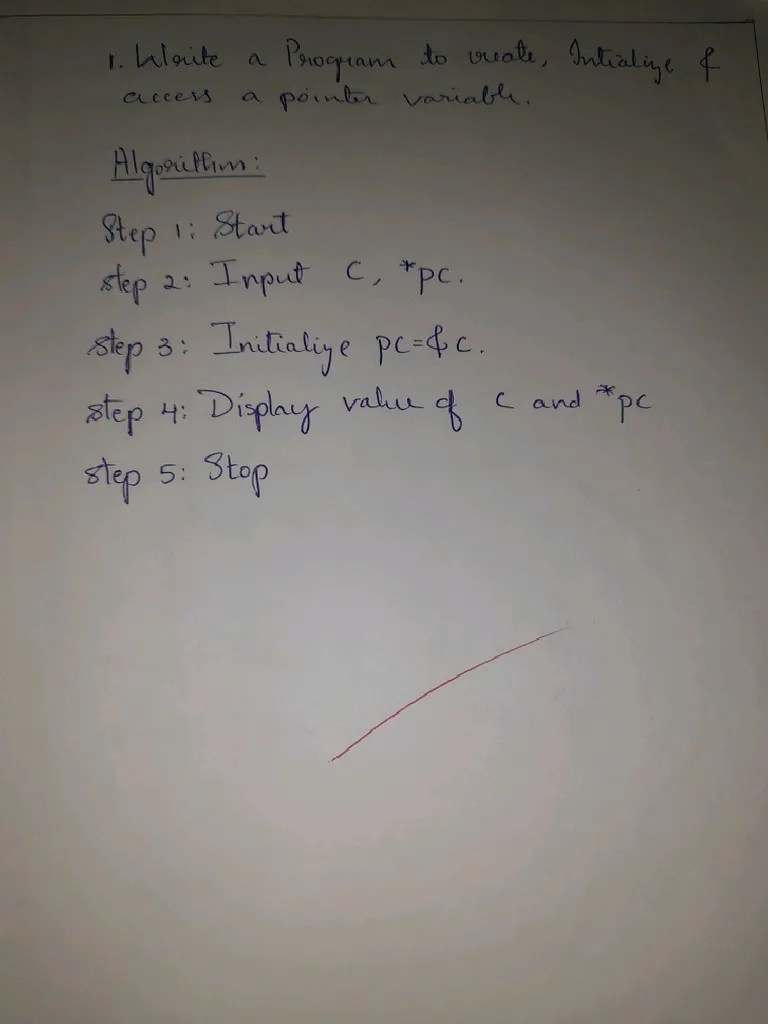 1. Write a Program to create, Intialize &
access a pointer variable.
Algorithm:
Step 1: Start
step 2: Input C, *pc.
step 3: Initialize pc=&c.
step 4: Display value of c and *pc
step 5: Stop